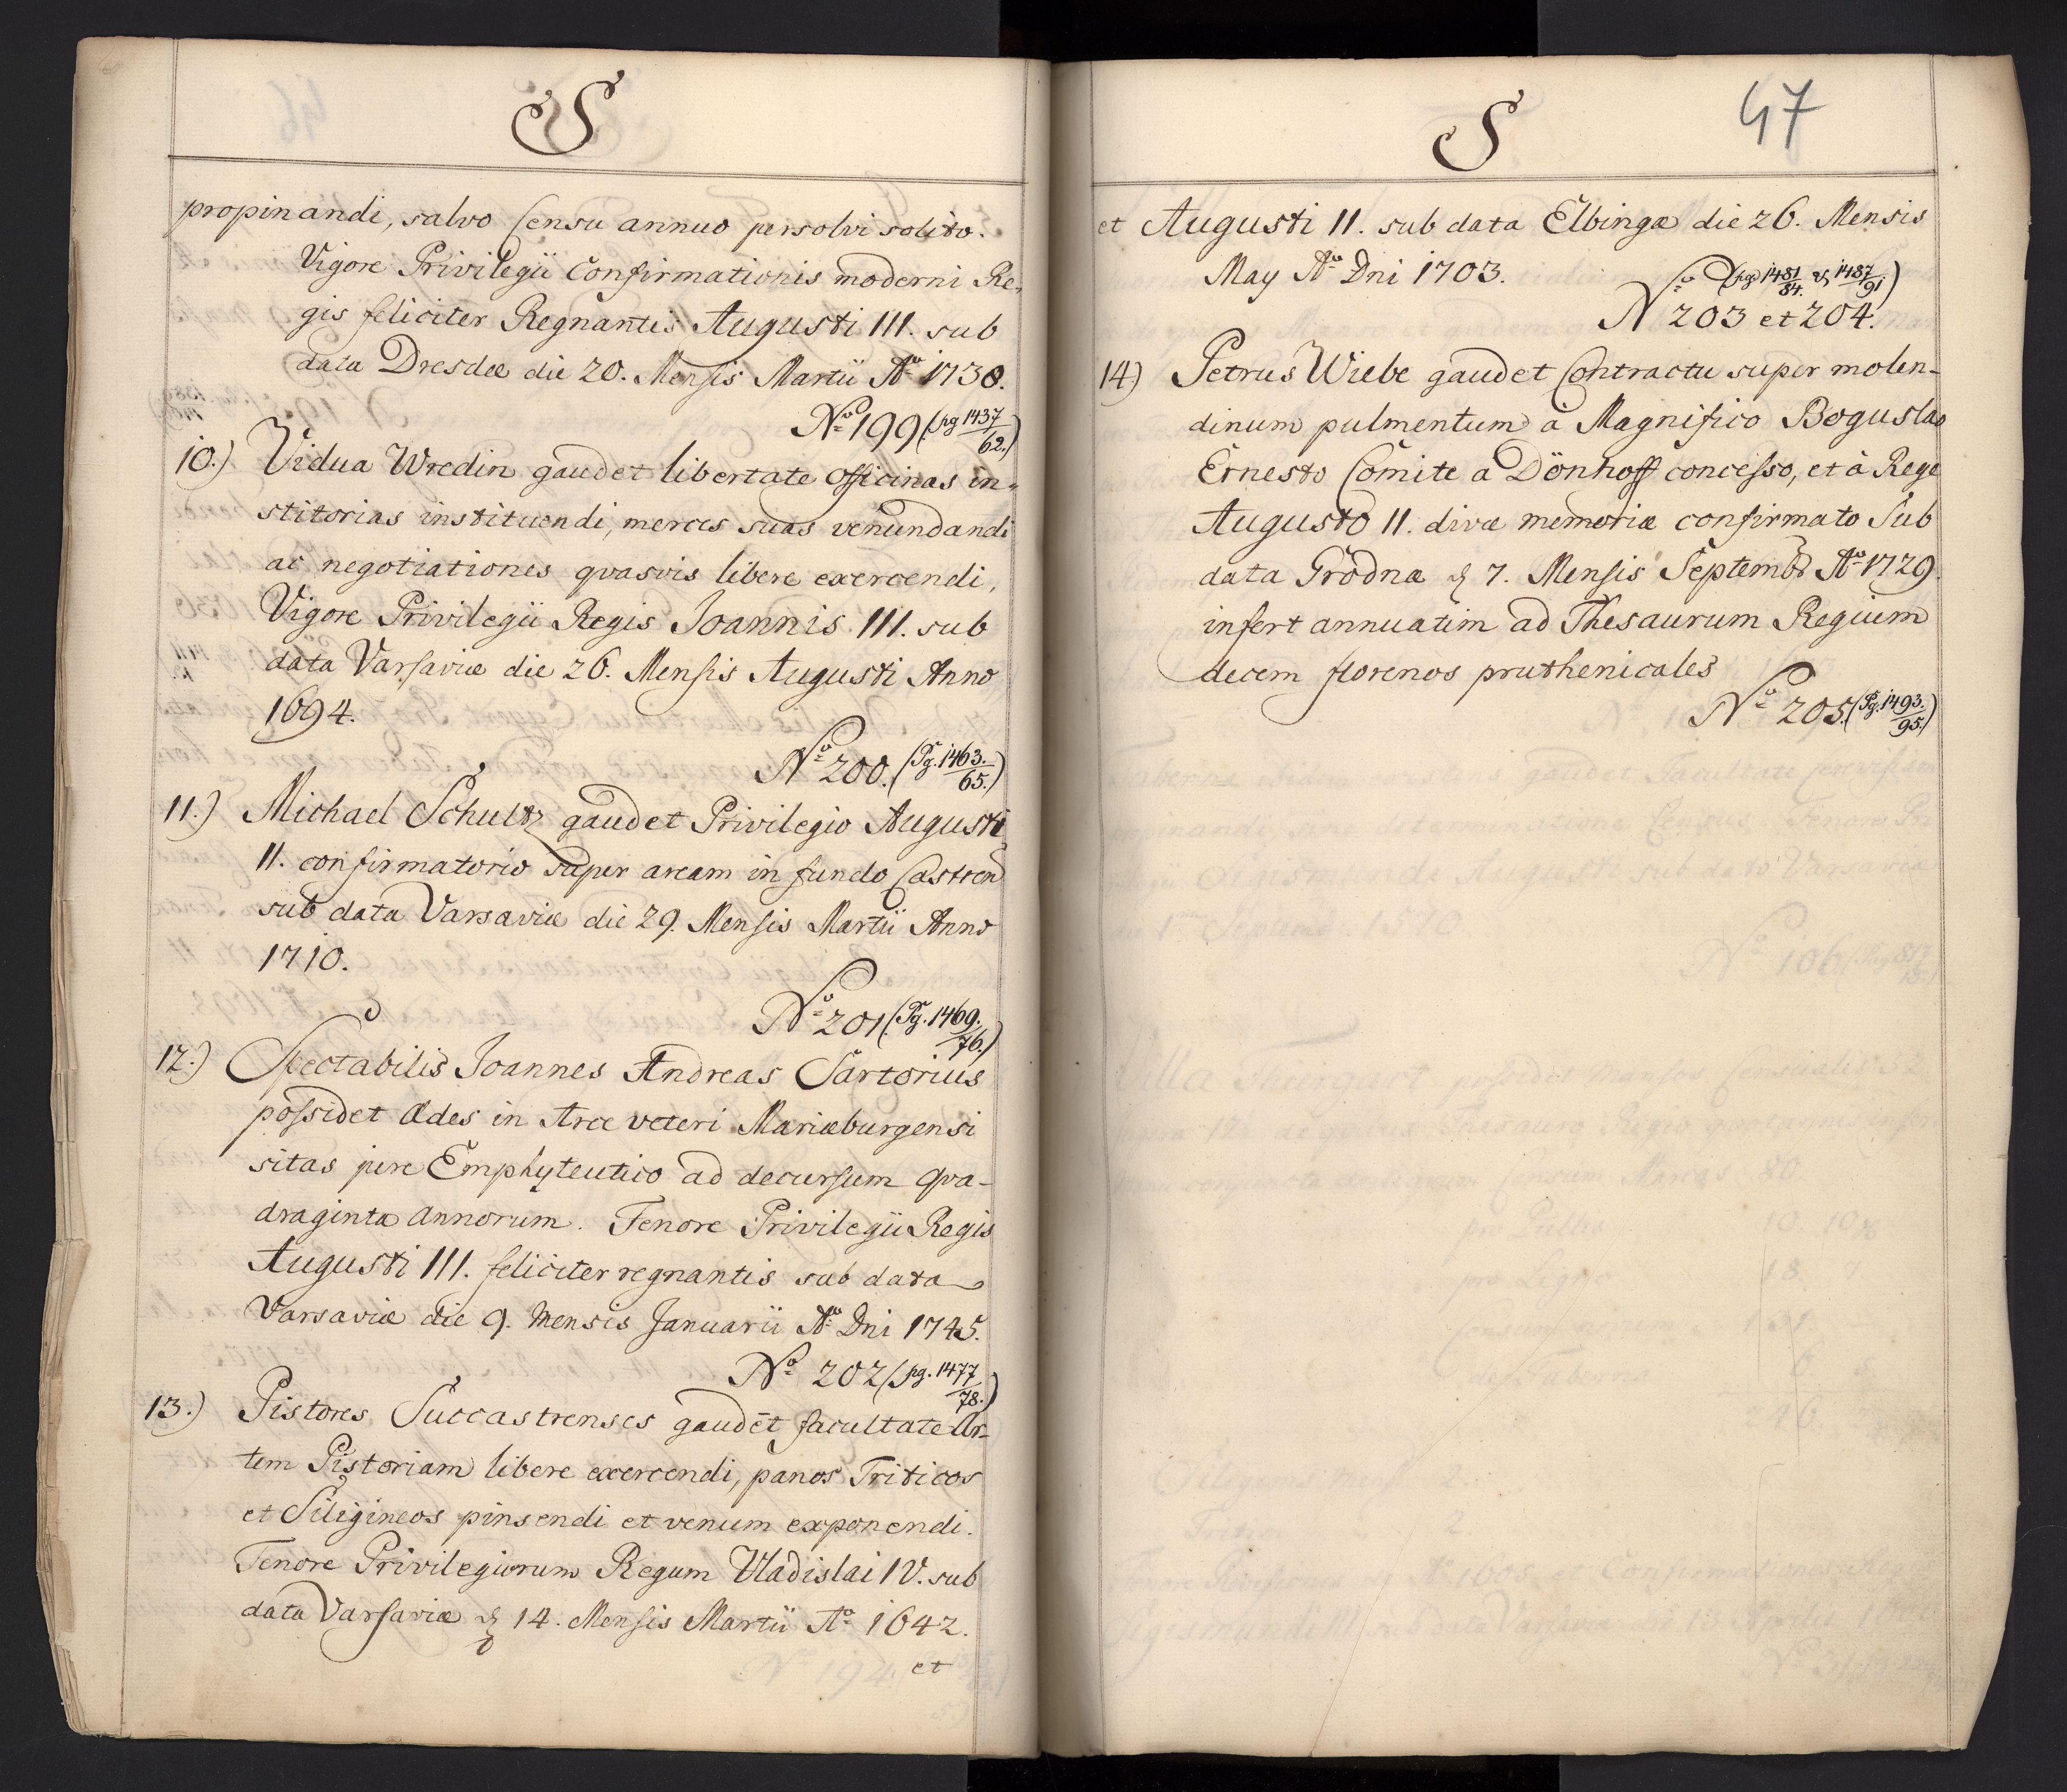 S
propinandi, salvo Censu annuo persolvi solito.
Vigore Privilegii Confirmationis moderni Re-
gis feliciter Regnantis Augusti III. sub
data Dresdæ die 20. Mensis Martii Aº 1738.
Nº 199 (pg 1437/62.)
10.) Vidua Wredin gaudet libertate officinas in-
stitorias instituendi, merces suas venundandi
ac negotiationes qvasvis libere exercendi,
Vigore Privilegii Regis Joannis III. sub
data Varsaviæ die 26. Mensis Augusti Anno
1694.
Nº 200. (Pg. 1463./65.)
11.) Michael Schultz gaudet Privilegio Augusti
II. confirmatorio super aream in fundo Castren
sub data Varsaviæ die 29. Mensis Martii Anno
1710.
Nº 201 (Pg. 1469./76.)
12.) Spectabilis Joannes Andreas Sartorius
possidet Ædes in Arce veteri Mariæburgensi
sitas jure Emphyteutico ad decursum qva-
draginta Annorum. Tenore Privilegii Regis
Augusti III. feliciter regnantis sub data
Varsaviæ die 9. Mensis Januarii Aº Dni 1745.
Nº 202 (pg. 1477/78.)
13.) Pistores Succastrenses gaudēt facultate Ar-
tem Pistoriam libere exercendi, panos Triticos
et Siligineos pinsendi et venum exponendi.
Tenore Privilegiorum Regum Vladislai IV. sub
data Varsaviæ d 14. Mensis Martii Aº 1642.
et
S
47
et Augusti II. sub data Elbingæ die 26. Mensis
May Aº Dni 1703.
(pg 1481/84. & 1487/91)
Nº 203 et 204.
14) Petrus Wiebe gaudet Contractu super molen-
dinum pulmentum à Magnifico Boguslao
Ernesto Comite a Dönhoff concesso, et à Rege
Augusto II. divæ memoriæ confirmato Sub
data Grodnæ d 7. Mensis Septembr Aº 1729.
infert annuatim ad Thesaurum Regium
decem florenos pruthenicales
Nº 205. (Pg. 1493./95.)